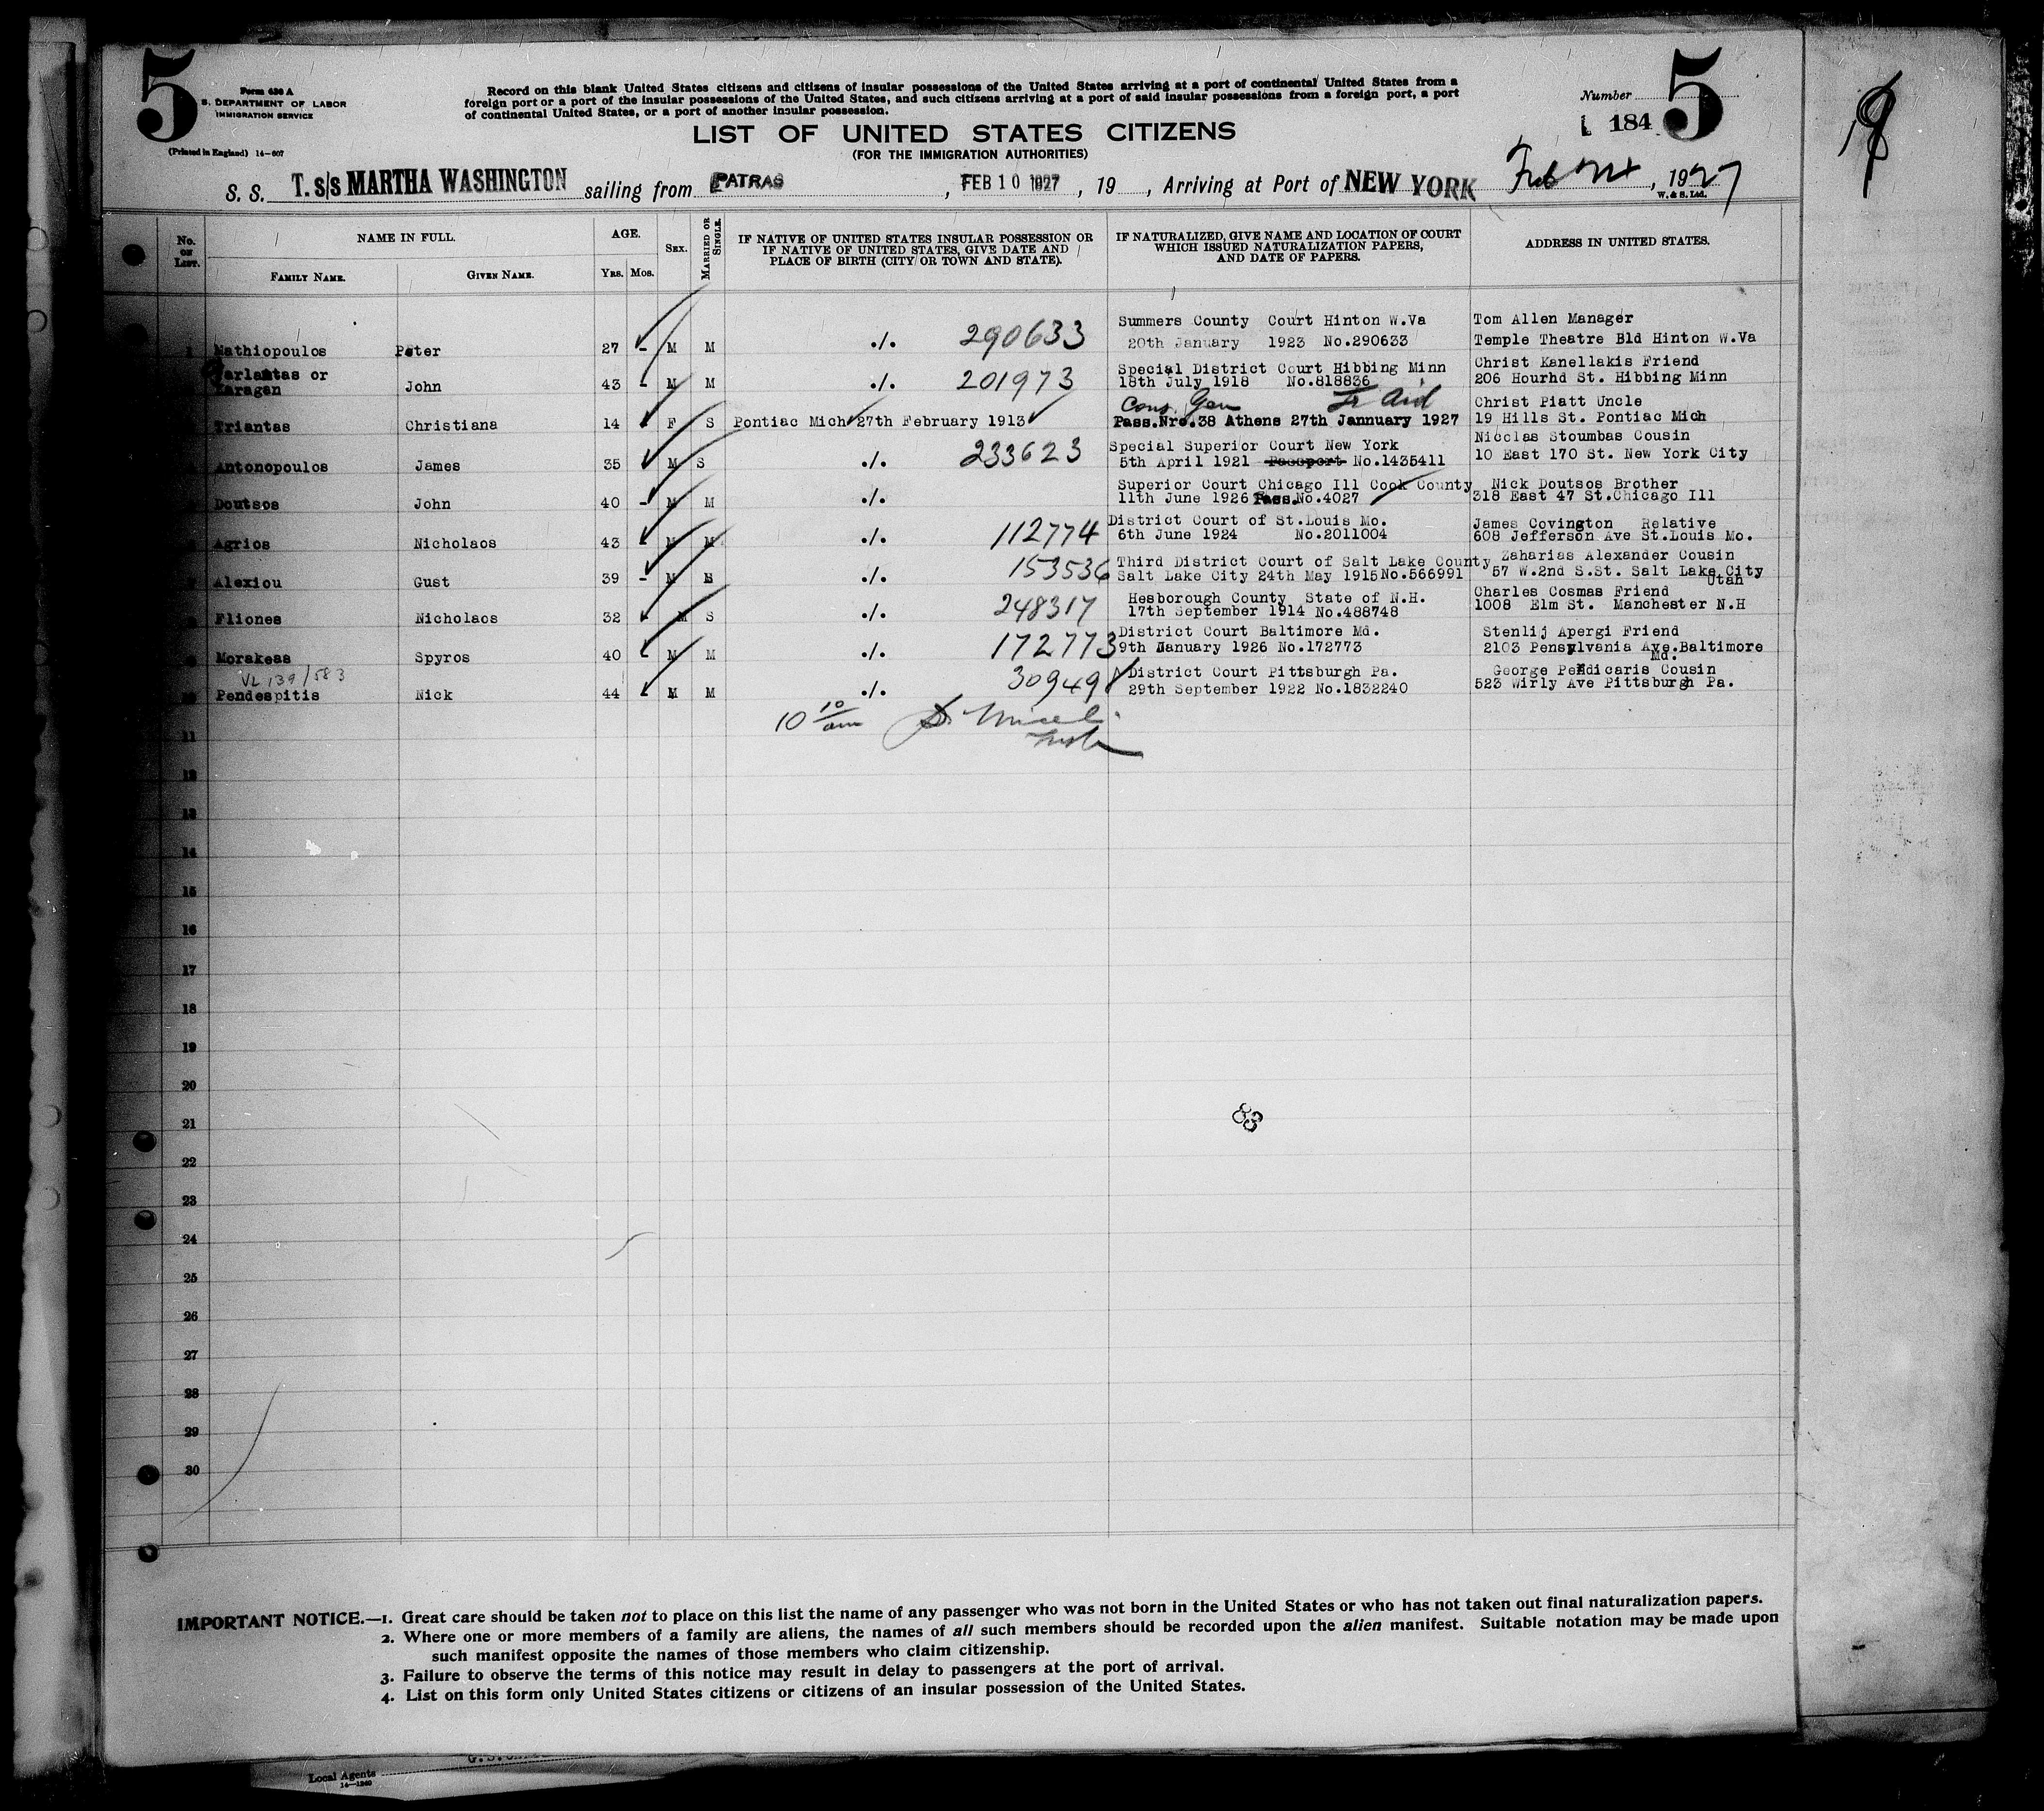 5
Form 630 A
S. DEPARTMENT OF LABOR
IMMIGRATION SERVICE
(Printed in England) 14-607
Record on this blank United States citizens and citizens of insular possessions of the United States arriving at a port of continental United States from a
foreign port or a port of the insular possessions of the United States, and such citizens arriving at a port of said insular possessions from a foreign port, a port
of continental United States, or a port of another insular possession.
Number
184
5
LIST OF UNITED STATES CITIZENS
(FOR THE IMMIGRATION AUTHORITIES)
S. S. T. s/s MARTHA WASHINGTON sailing from PATRAS, FEB 10 1927, 19 , Arriving at Port of NEW YORK Feb , 1927
W. & S. Ltd.
No. on List. NAME IN FULL. AGE. Sex. Married or Single. IF NATIVE OF UNITED STATES INSULAR POSSESSION OR IF NATIVE OF UNITED STATES, GIVE DATE AND PLACE OF BIRTH (CITY OR TOWN AND STATE). IF NATURALIZED, GIVE NAME AND LOCATION OF COURT WHICH ISSUED NATURALIZATION PAPERS, AND DATE OF PAPERS. ADDRESS IN UNITED STATES.
Family Name. Given Name. Yrs. Mos.
Summers County Court Hinton W.Va Tom Allen Manager
Mathiopoulos Peter 27 - M M ./. 290633 20th January 1923 No.290633 Temple Theatre Bld Hinton W.Va
arlantas or Special District Court Hibbing Minn Christ Kanellakis Friend
Karagan John 43 - M M ./. 201973 18th July 1918 No.818836 206 Hourhd St. Hibbing Minn
Cons. Gen Christ Piatt Uncle
Triantas Christiana 14 F S Pontiac Mich 27th February 1913 Pass.Nro.38 Athens 27th Jannuary 1927 19 Hills St. Pontiac Mich
Special Superior Court New York Nicolas Stoumbas Cousin
Antonopoulos James 35 M S ./. 233623 5th April 1921 Passport No.1435411 10 East 170 St. New York City
Superior Court Chicago Ill Cook County Nick Doutsos Brother
Doutsos John 40 - M M ./. 11th June 1926 Pass.No.4027 318 East 47 St.Chicago Ill
District Court of St.Louis Mo. James Covington Relative
Agrios Nicholaos 43 M M ./. 112774 6th June 1924 No.2011004 608 Jefferson Ave St.Louis Mo.
Third District Court of Salt Lake County Zaharias Alexander Cousin
Alexiou Gust 39 - M ./. 153536 Salt Lake City 24th May 1915 No.566991 57 W.2nd S.St. Salt Lake City
Utah
Hesborough County State of N.H. Charles Cosmas Friend
Fliones Nicholaos 32 M S ./. 248317 17th September 1914 No.488748 1008 Elm St. Manchester N.H
District Court Baltimore Md. Stenlij Apergi Friend
Morakeas Spyros 40 - M M ./. 172773 9th January 1926 No.172773 2103 Pensylvania Ave.Baltimore
Md.
VL 139/583 District Court Pittsburgh Pa. George Pendicaris Cousin
10 Pendespitis Nick 44 M M ./. 30949 29th September 1922 No.1832240 523 Wirly Ave Pittsburgh Pa.
10 10 am
11
12
13
14
15
16
17
18
19
20
21
83
22
23
24
25
26
27
28
29
30
IMPORTANT NOTICE.—1. Great care should be taken not to place on this list the name of any passenger who was not born in the United States or who has not taken out final naturalization papers.
2. Where one or more members of a family are aliens, the names of all such members should be recorded upon the alien manifest. Suitable notation may be made upon
such manifest opposite the names of those members who claim citizenship.
3. Failure to observe the terms of this notice may result in delay to passengers at the port of arrival.
4. List on this form only United States citizens or citizens of an insular possession of the United States.
Local Agents